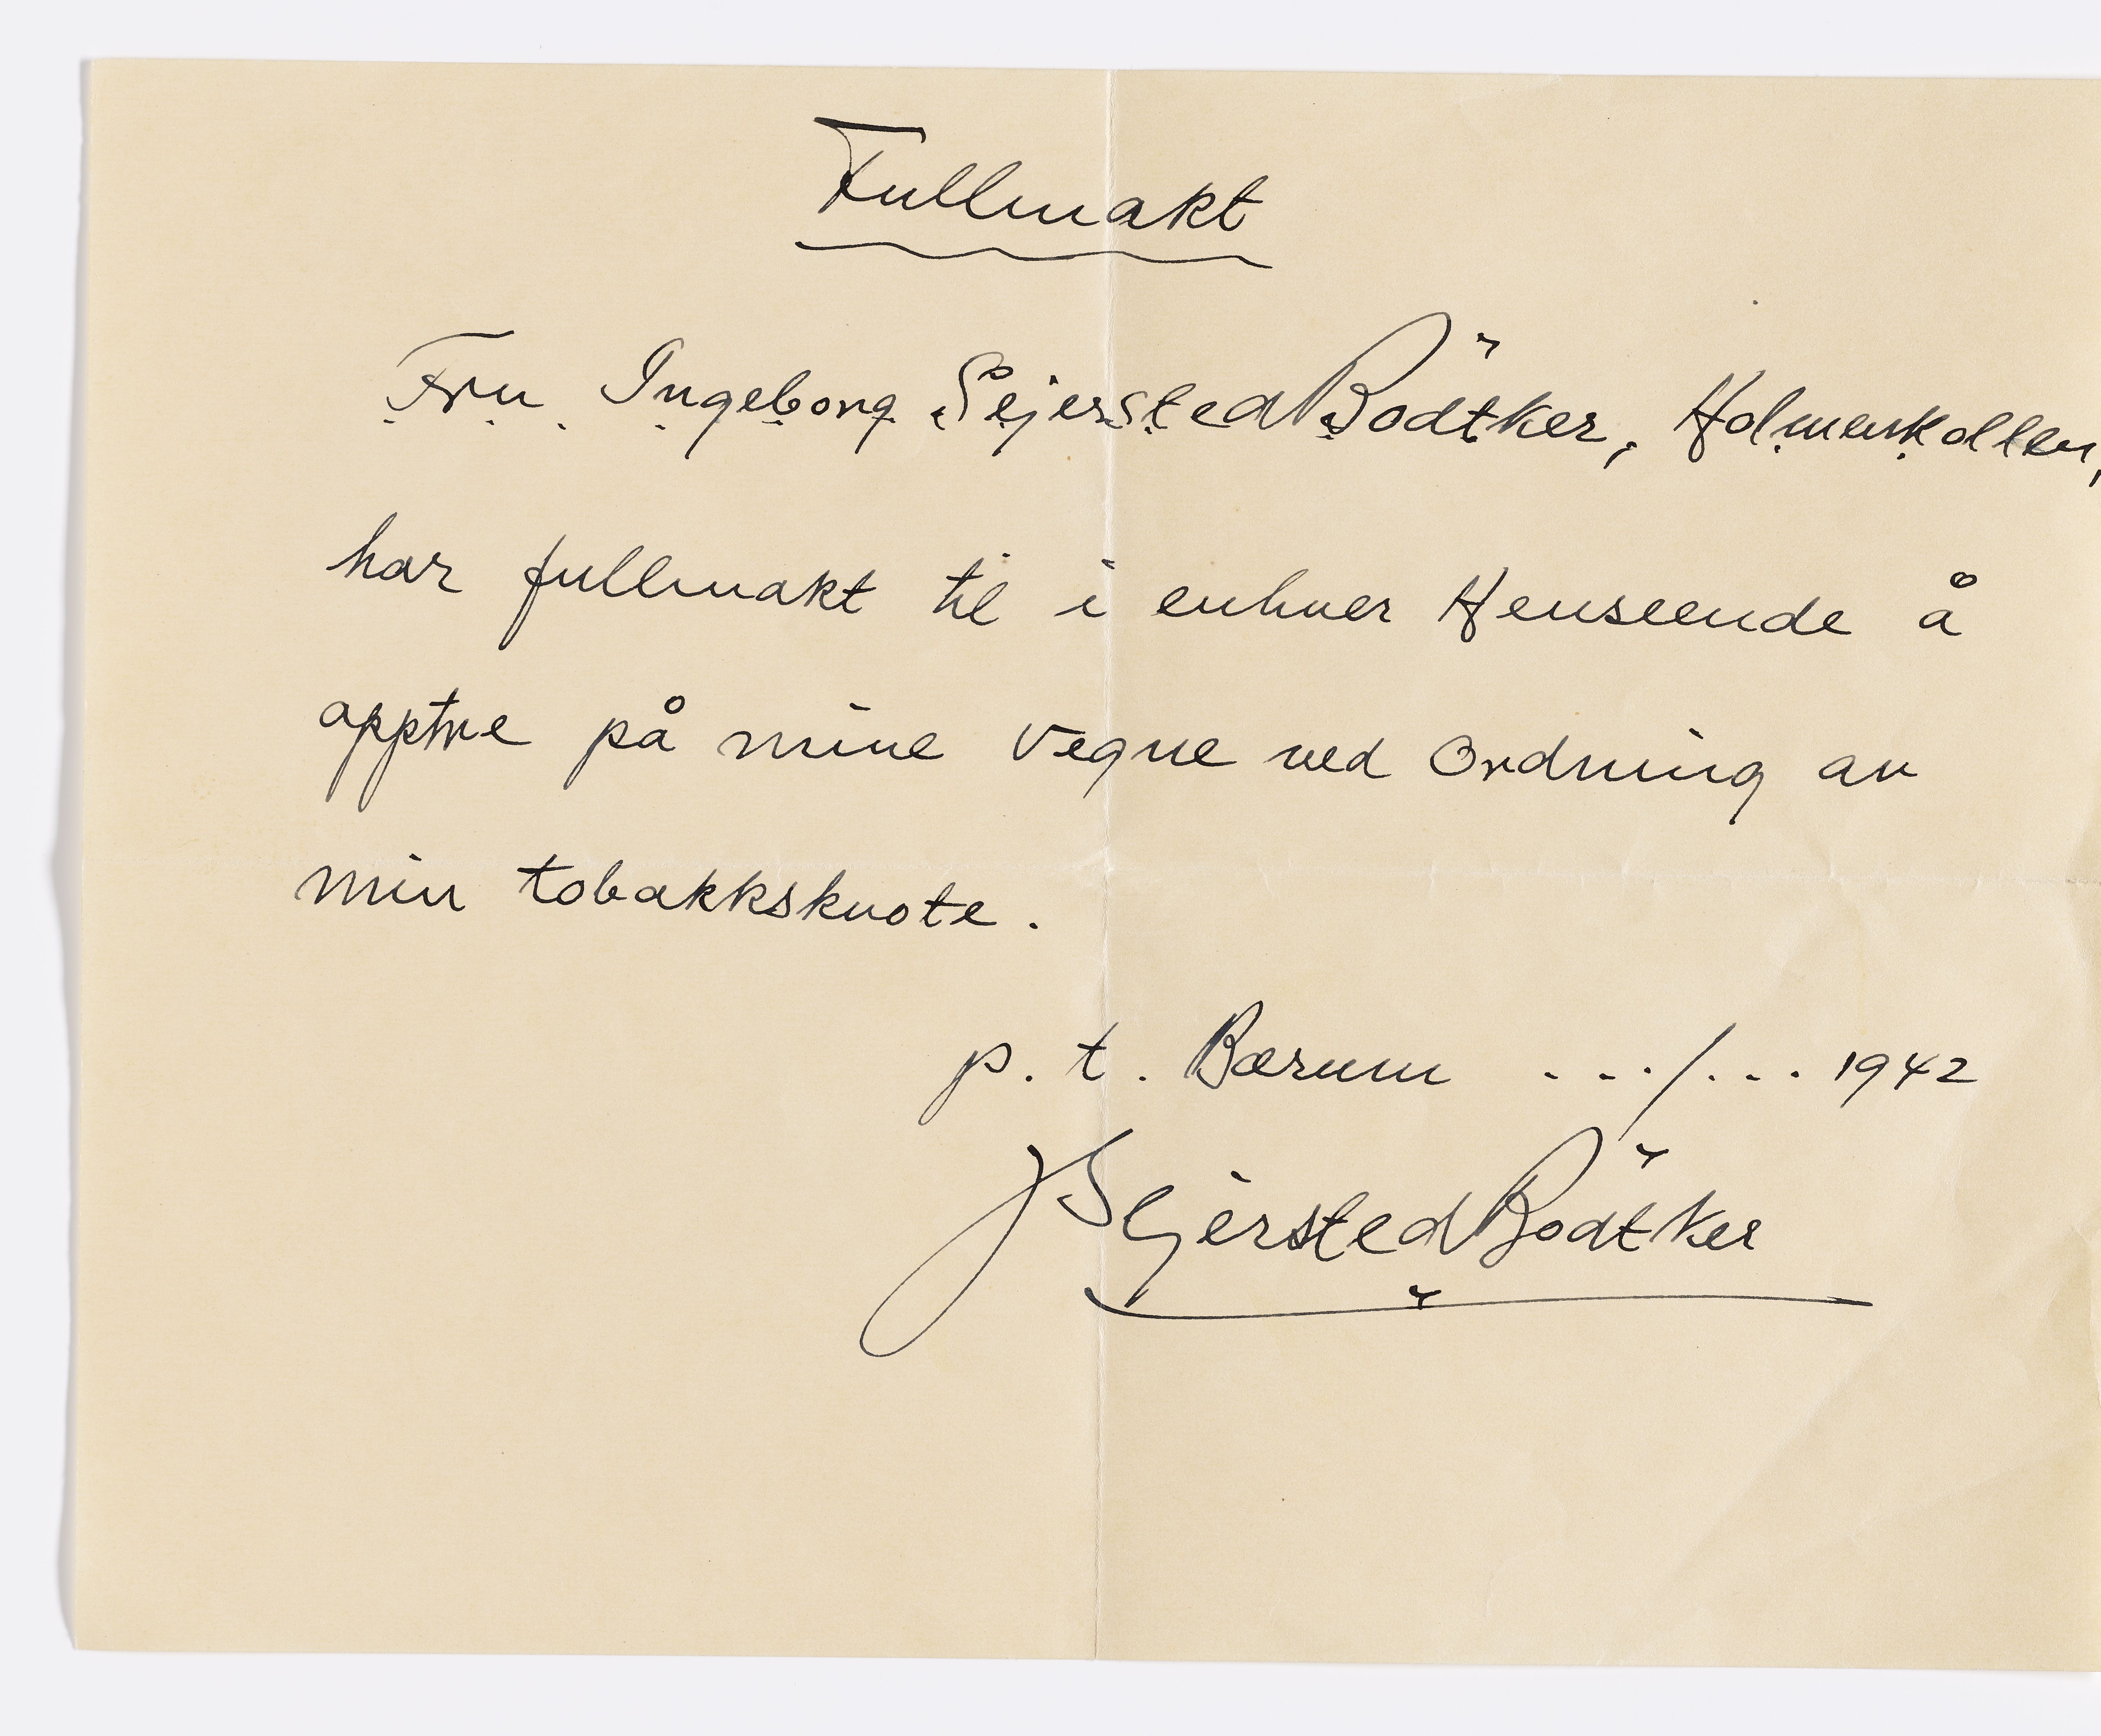 Fullmakt
Fru Ingeborg Sejersted Bödtker, Holmenkollen,
har fullmakt til i enhver Henseende å
opptre på mine Vegne ved Ordning av
min tobakkskvote.
p. t. Bærum .../... 1942
J Sejersted Bödtker